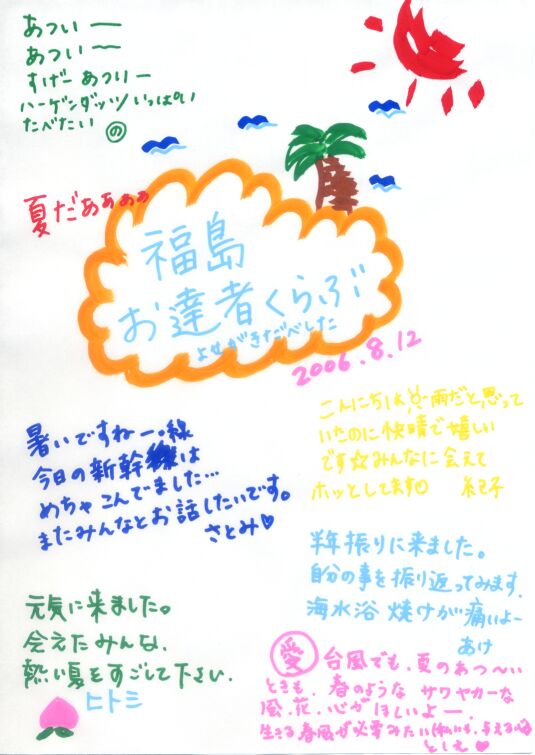 あついー
あつい〜
すげー あつい ー
ハーゲンダッツ いっぱい
たべたい の
夏だぁぁぁぁ
福島
お達者くらぶ
よせがき だべした
2006.8.12
暑いですねー。線
今日の新幹線は
めちゃ こんでました…
またみんなとお話したいです。
さとみ♡
こんにちは 雨だと思って
いたのに快晴で嬉しい
です☆みんなに会えて
ホッとしてます 紀子
半年振りに来ました。
自分の事を振り返ってみます。
海水浴 焼けが痛いよー
あけ
元気に来ました。
会えたみんな、
熱い夏をすごして下さい。
ヒトミ
愛 台風でも、夏のあつ〜い
ときも、春のような サワヤカーな
風、花、心がほしいよー。
生きる春風が必要みたい(私にも、与える心)
として♥